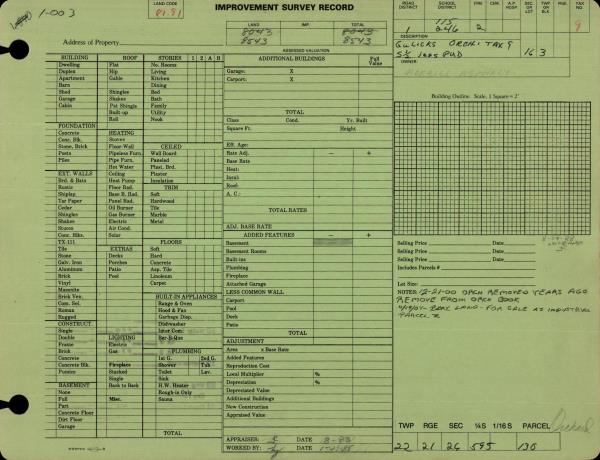 IMPROVEMENT SURVEY RECORD
1-003
LAND CODE
81.91
LAND IMP.
8043 8043
8543 8543
Address of Property
ASSESSED VALUATION
ROAD DISTRICT SCHOOL DISTRICT FIRE CEM. A.P. HOSP. SEC OR LOT TWP OR BLK RGE TAX NO
115
246 2 9
DESCRIPTION
OWNER
16 3
BUILDING ROOF STORIES 1 2 A B
Dwelling Flat No. Rooms
Duplex Hip Living
Apartment Gable Kitchen
Barn Dining
Shed Shingles Bed
Garage Shakes Bath
Cabin Pat Shingle Family
Built-up Utility
Roll Nook
FOUNDATION
Concrete HEATING
Conc. Blk. Stoves CEILED
Stone, Brick Floor-Wall Wall Board
Posts Pipeless Furn. Paneled
Piles Pipe Furn. Plast. Brd.
Hot Water Plaster
EXT. WALLS Ceiling Insulation
Brd. & Bats Heat Pump TRIM
Rustic Floor Rad. Soft
Shiplap Base B. Rad. Hardwood
Tar Paper Panel Rad. Tile
Cedar Oil Burner Marble
Shingles Gas Burner Metal
Shakes Electric
Stucco Air Cond.
Conc. Blks. Solar
TX-111 FLOORS
Tile EXTRAS Soft
Stone Decks Hard
Galv. Iron Porches Concrete
Aluminum Patio Asp. Tile
Brick Pool Linoleum
Vinyl Carpet
Masonite
Brick Ven. BUILT-IN APPLIANCES
Com. Sel. Range & Oven
Roman Hood & Fan
Rugged Garbage Disp.
CONSTRUCT. Dishwasher
Single Inter Com
Double LIGHTING Bar-B-Que
Frame Electric
Brick Gas PLUMBING
Concrete 1st G. 2nd G.
Concrete Blk. Fireplace Shower Tub
Pumice Stacked Toilet Lav.
Single Sink
BASEMENT Back to Back H.W. Heater
None Rough-in Only
Full Misc. Sauna
Part
Concrete Floor
Dirt Floor
Garage
TOTAL
ADDITIONAL BUILDINGS Full Value
Garage: X
Carport: X
TOTAL
Class Cond. Yr. Built
Square Ft. Height
Eff. Age:
Rate Adj. − +
Base Rate
Heat:
Insul:
Roof:
A. C.:
TOTAL RATES
ADJ. BASE RATE
ADDED FEATURES − +
Basement
Basement Rooms
Built-ins
Plumbing
Fireplace
Attached Garage
LESS COMMON WALL
Carport
Pool
Deck
Patio
TOTAL
ADJUSTMENT
Area x Base Rate
Added Features
Reproduction Cost
Local Multiplier %
Depreciation %
Depreciated Value
Additional Buildings
New Construction
Appraised Value
APPRAISER: DATE
WORKED BY: DATE
Building Outline. Scale, 1 Square = 2'
Selling Price Date
Selling Price Date
Selling Price Date
Includes Parcels #
Lot Size:
NOTES: 12-21-00 ORCH REMOVED YEARS AGO
REMOVE FROM ORCH BOOK
BARE LAND - FOR SALE AS INDUSTRIAL
PARCEL
TWP RGE SEC ¼S 1/16 S PARCEL
22 21 26 595 130
Orchard